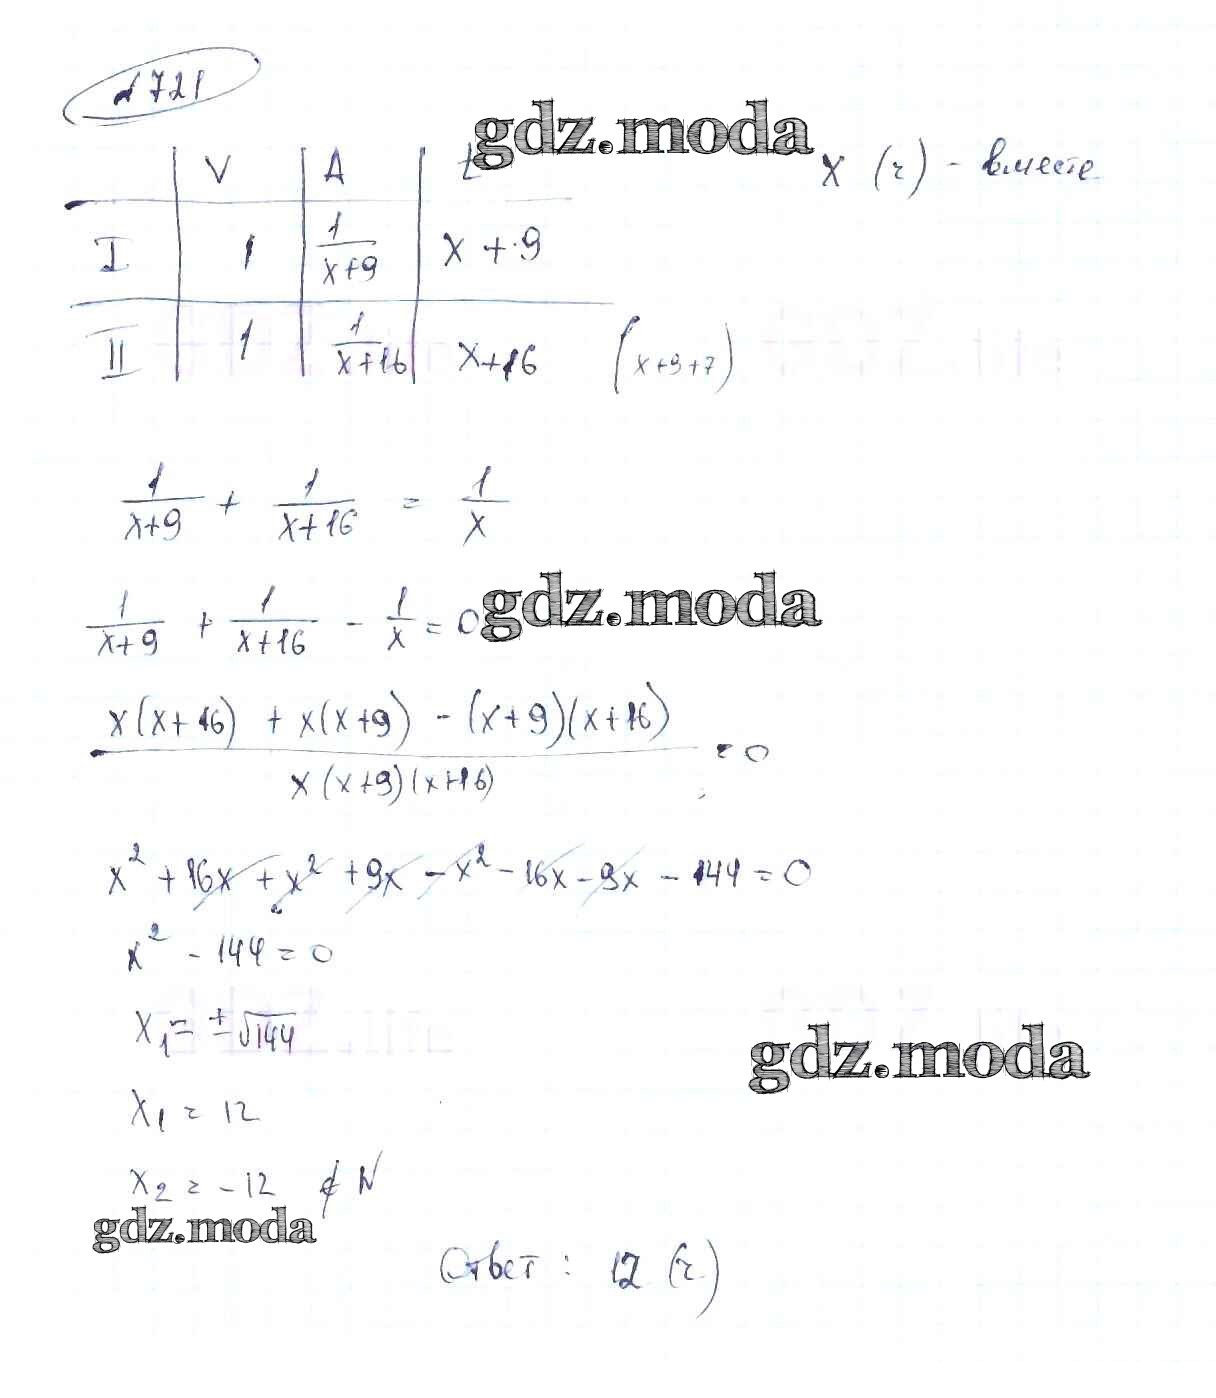 № 721
gdz.moda
V A t
x (ч) - вместе
I 1 1/(x+9) x + 9
II 1 1/(x+16) x+16 (x+9+7)
1/(x+9) + 1/(x+16) = 1/x
1/(x+9) + 1/(x+16) - 1/x = 0
gdz.moda
(x(x+16) + x(x+9) - (x+9)(x+16))/(x(x+9)(x+16)) = 0
x² + 16x + x² + 9x - x² - 16x - 9x - 144 = 0
x² - 144 = 0
x₁ = ±√144
gdz.moda
x₁ = 12
x₂ = -12 ∉ N
gdz.moda
Ответ : 12 (ч)